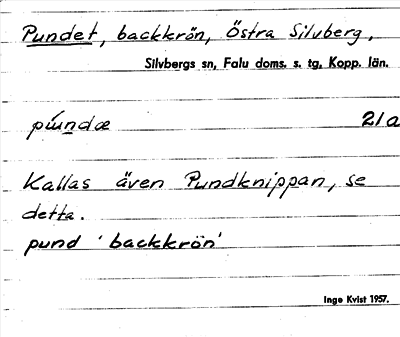 Pundet, backkrön, Östra Silvberg,
Silvbergs sn, Falu doms. s. tg, Kopp. län.
púndæ 21a
Kallas även Pundknippan, se
detta.
pund 'backkrön'
Inge Kvist 1957.